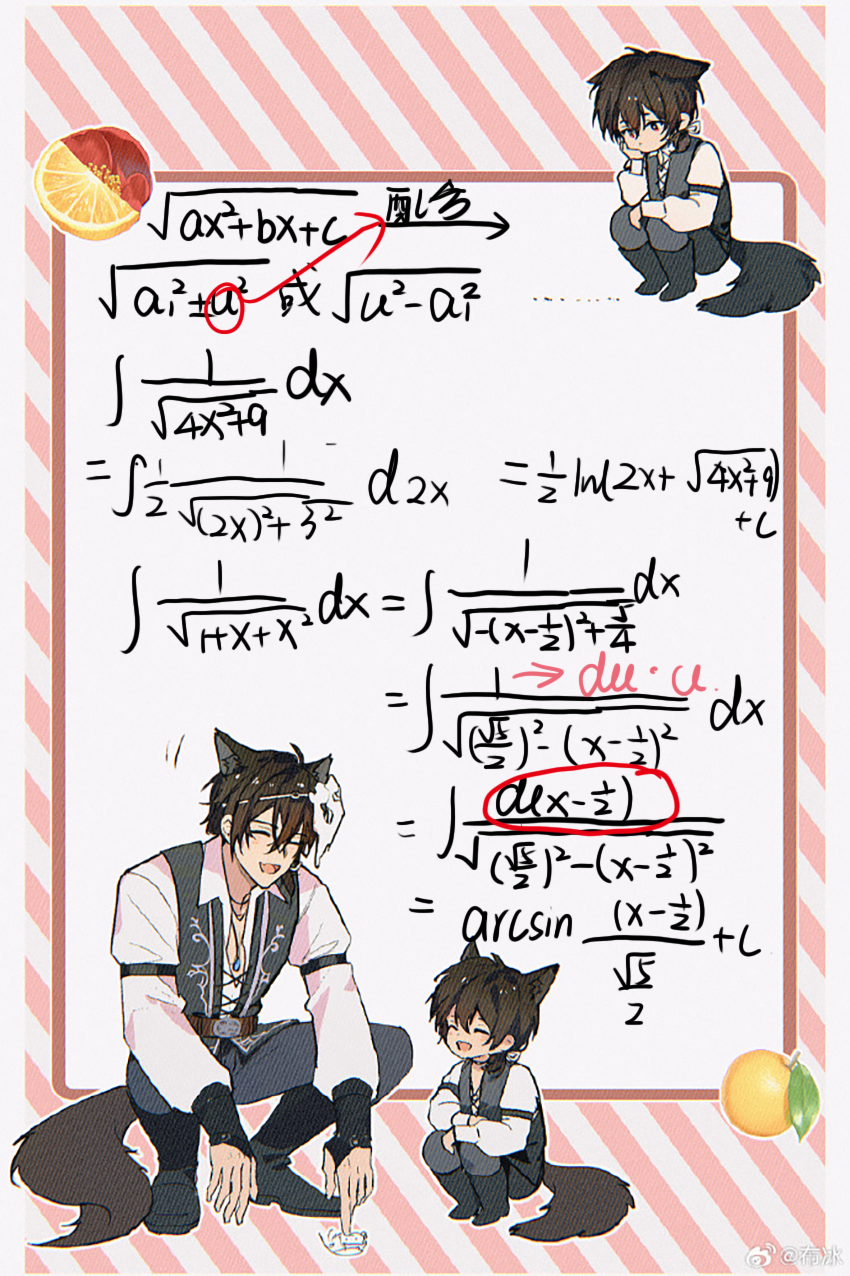 √(ax²+bx+c) 配合→
√(a₁²±u²) 或 √(u²-a₁²) ......
∫ 1/√(4x²+9) dx
= ∫ 1/2 1/√((2x)²+3²) d2x = 1/2 ln(2x+√(4x²+9))+C
∫ 1/√(1+x+x²) dx = ∫ 1/√(-(x-1/2)²+5/4) dx
= ∫ 1/√((√5/2)²-(x-1/2)²) dx → du·u.
= ∫ d(x-1/2)/√((√5/2)²-(x-1/2)²)
= arcsin (x-1/2)/(√5/2) +C
@布冰